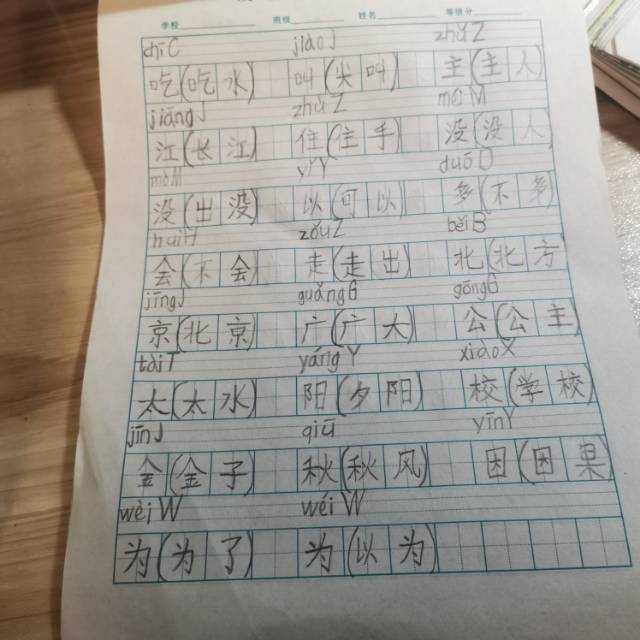 学校 班级 姓名 等级分
chī C jiào J zhǔ Z
吃(吃水) 叫(尖叫) 主(主人)
jiāng J zhù Z méi M
江(长江) 住(住手) 没(没人)
mò M yǐ Y duō D
没(出没) 以(可以) 多(不多)
huì H zǒu Z běi B
会(不会) 走(走出) 北(北方)
jīng J guǎng G gōng G
京(北京) 广(广大) 公(公主)
tài T yáng Y xiào X
太(太水) 阳(夕阳) 校(学校)
jīn J qiū yīn Y
金(金子) 秋(秋风) 因(因果)
wèi W wéi W
为(为了) 为(以为)